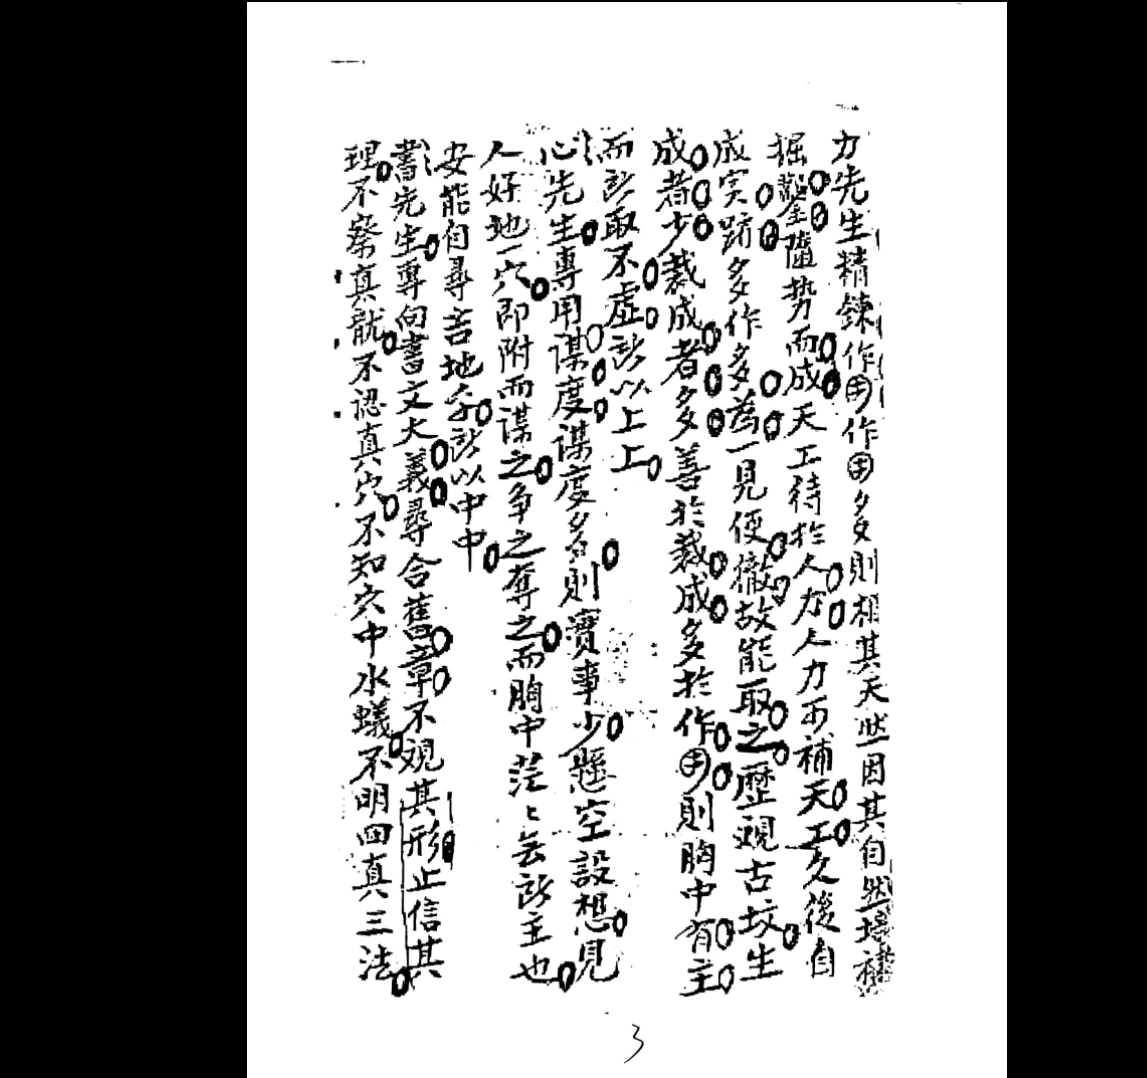 力先生精鍊作用作用多則相其天然因其自然培補
掘鑿隨势而成天工待於人力人力可補天工久後自
成实跡多作多為一見便徹故能取之歷观古坟生
成者少裁成者多多善於裁成多於作用則胸中有主
而所取不虚所以上上
心先生專用谋度谋度多則實事少懸空設想見
人好地一穴即附而谋之争之奪之而胸中茫〻无所主也
安能自尋吉地乎所以中中
書先生專向書文大義尋合舊章不观其形止信其
理不察真龍不認真穴不知穴中水蟻不明四真三法
3